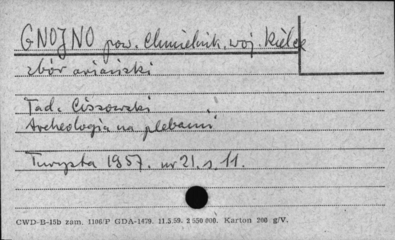 GNOJNO pow. Chmielnik, woj. Kielce
zbór ariański
Tad. Ciszowski
Archeologia na plebanii
Turysta 1957. nr 21. s. 11.
CWD-B-15b zam. 1106/P GDA-1479. 11.5.59. 2 550 000. Karton 200 g/V.